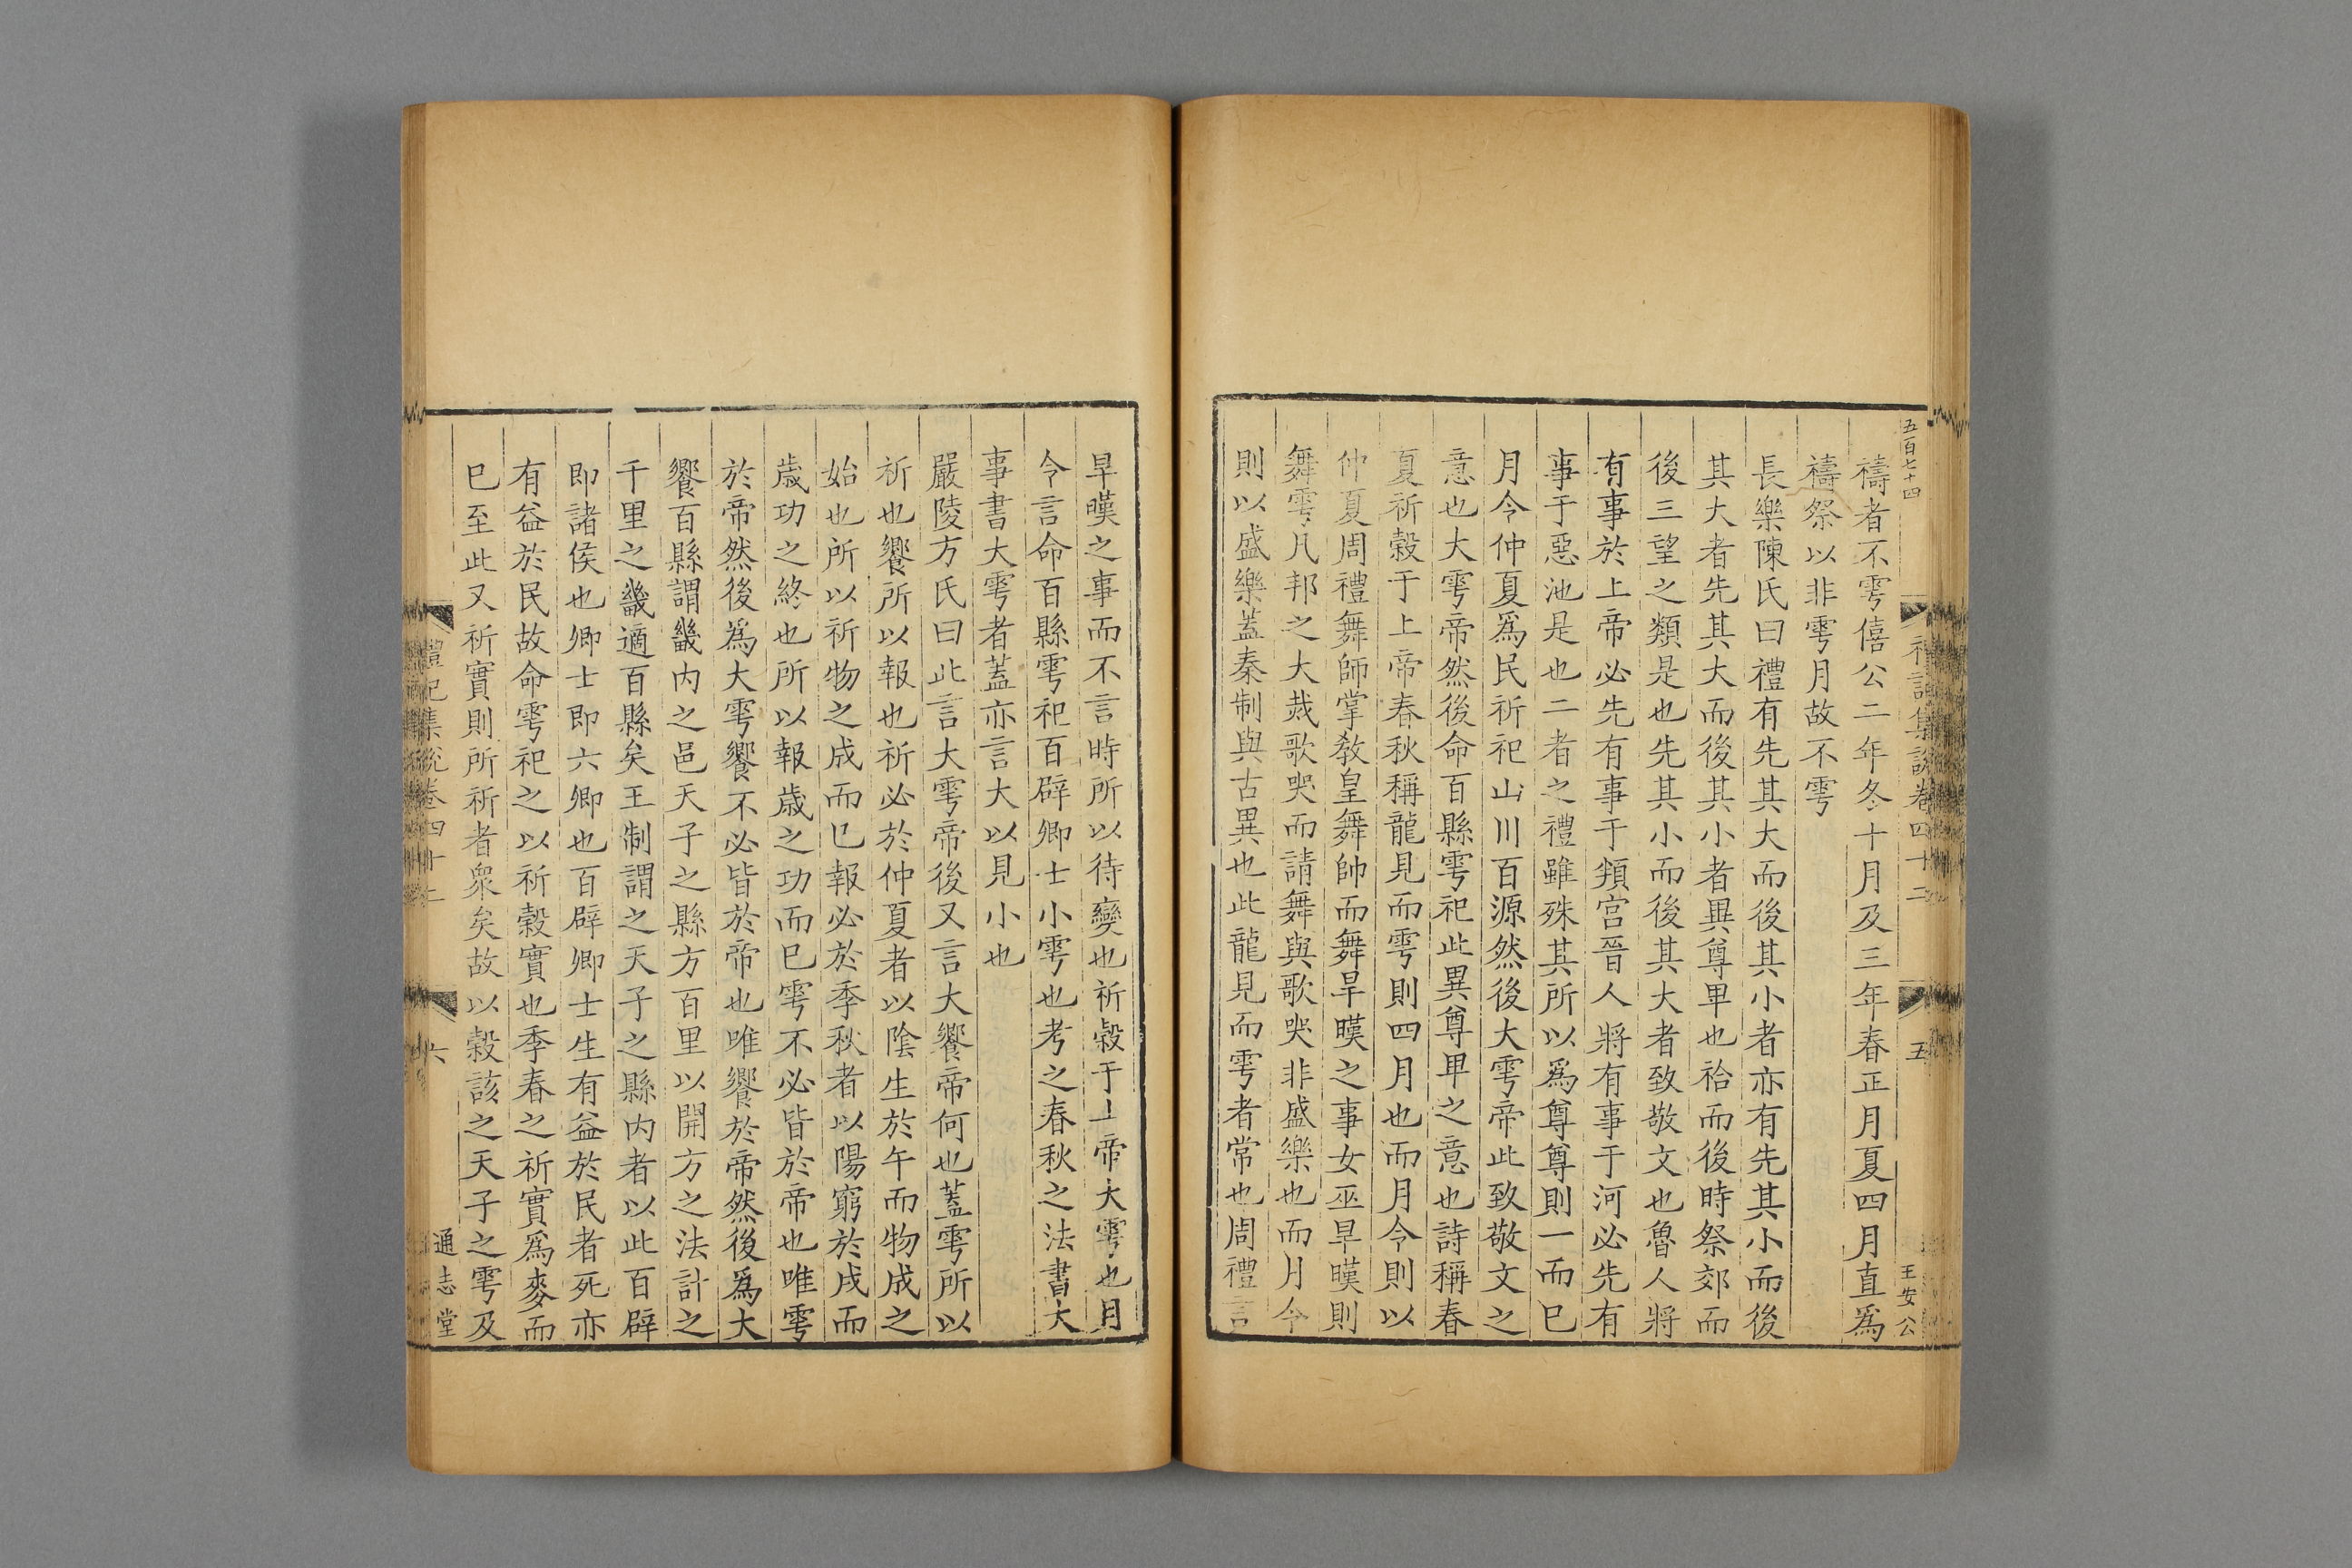 五百七十四
禮記集說卷四十二
五
王安公
禱者不雩僖公二年冬十月及三年春正月夏四月直爲
禱祭以非雩月故不雩
長樂陳氏曰禮有先其大而後其小者亦有先其小而後
其大者先其大而後其小者異尊𤰞也祫而後時祭郊而
後三望之類是也先其小而後其大者致敬文也魯人將
有事於上帝必先有事于頖宮晉人將有事于河必先有
事于惡池是也二者之禮雖殊其所以爲尊尊則一而巳
月令仲夏爲民祈祀山川百源然後大雩帝此致敬文之
意也大雩帝然後命百縣雩祀此異尊𤰞之意也詩稱春
夏祈穀于上帝春秋稱龍見而雩則四月也而月令則以
仲夏周禮舞師掌敎皇舞帥而舞旱暵之事女巫旱暵則
舞雩凡邦之大烖歌哭而請舞與歌哭非盛樂也而月令
則以盛樂蓋秦制與古異也此龍見而雩者常也周禮言
旱暵之事而不言時所以待變也祈穀于上帝大雩也月
令言命百縣雩祀百辟卿士小雩也考之春秋之法書大
事書大雩者蓋亦言大以見小也
嚴陵方氏曰此言大雩帝後又言大饗帝何也蓋雩所以
祈也饗所以報也祈必於仲夏者以陰生於午而物成之
始也所以祈物之成而巳報必於季秋者以陽窮於戌而
歲功之終也所以報歲之功而巳雩不必皆於帝也唯雩
於帝然後爲大雩饗不必皆於帝也唯饗於帝然後爲大
饗百縣謂畿内之邑天子之縣方百里以開方之法計之
千里之畿適百縣矣王制謂之天子之縣内者以此百辟
即諸侯也卿士即六卿也百辟卿士生有益於民者死亦
有益於民故命雩祀之以祈穀實也季春之祈實爲麥而
巳至此又祈實則所祈者衆矣故以穀該之天子之雩及
禮記集說卷四十二
六
通志堂